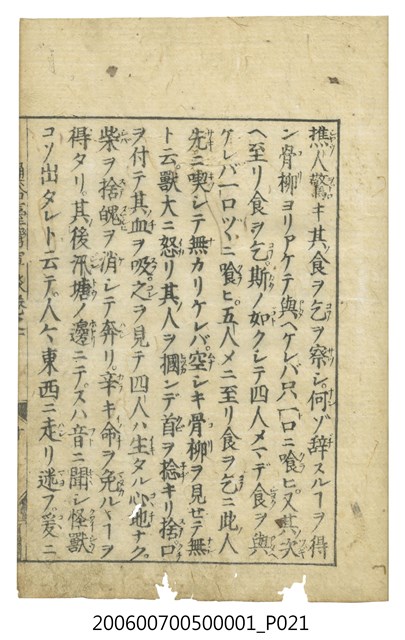 樵人驚キ其食ヲ乞ヲ察シ何ゾ辞スルヿヲ得
ン骨柳ヨリアケテ與ヘケレバ只一口ニ喰ヒ又其次
ヘ至リ食ヲ乞斯ノ如クシテ四人メマデ食ヲ與
ケレバ一口ヅヽニ喰ヒ五人メニ至リ食ヲ乞ニ此人
先ニ喫シテ無カリケレバ空シキ骨柳ヲ見セテ無
ト云獸大ニ怒リ其人ヲ摑ンデ首ヲ捻キリ捨口
ヲ付テ其血ヲ吸之ヲ見テ四人ハ生タル心地ナク
柴ヲ捨魄ヲ消シテ奔リ辛キ命ヲ免ルヿヲ
得タリ其後汛塘ノ邊ニテスハ音ニ聞シ怪獸
コソ出タレト云テ人々東西ニ走リ迷フ爰ニ
200600700500001_P021